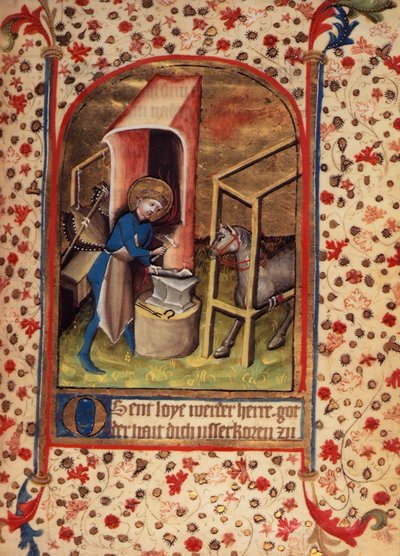 O Sent loye werder herre. got
der haut dich vsserkozen zu